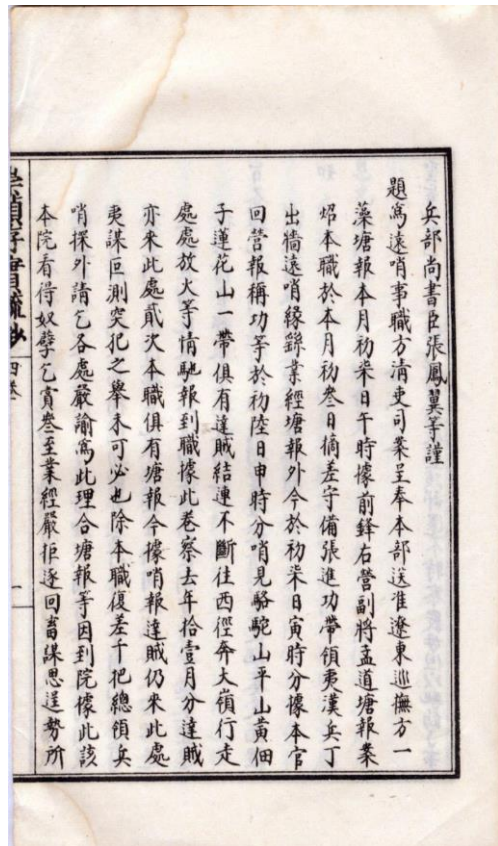 兵部尚書臣張鳳翼等謹
題爲遠哨事職方清吏司案呈奉本部送准遼東巡撫方一
藻塘報本月初柒日午時據前鋒右營副將孟道塘報案
炤本職於本月初叁日摘差守備張進功帶領夷漢兵丁
出牆遠哨緣繇業經塘報外今於初柒日寅時分據本官
回營報稱功等於初陸日申時分哨見駱駝山平山黃佃
子蓮花山一帶俱有達賊結連不斷往西徑奔大嶺行走
處處放火等情馳報到職據此卷察去年拾壹月分達賊
亦來此處貳次本職俱有塘報今據哨報達賊仍來此處
夷謀叵測突犯之舉未可必也除本職復差千把總領兵
哨探外請乞各處嚴諭爲此理合塘報等因到院據此該
本院看得奴孽乞賞叁至業經嚴拒逐回畜謀思逞勢所
四卷
一